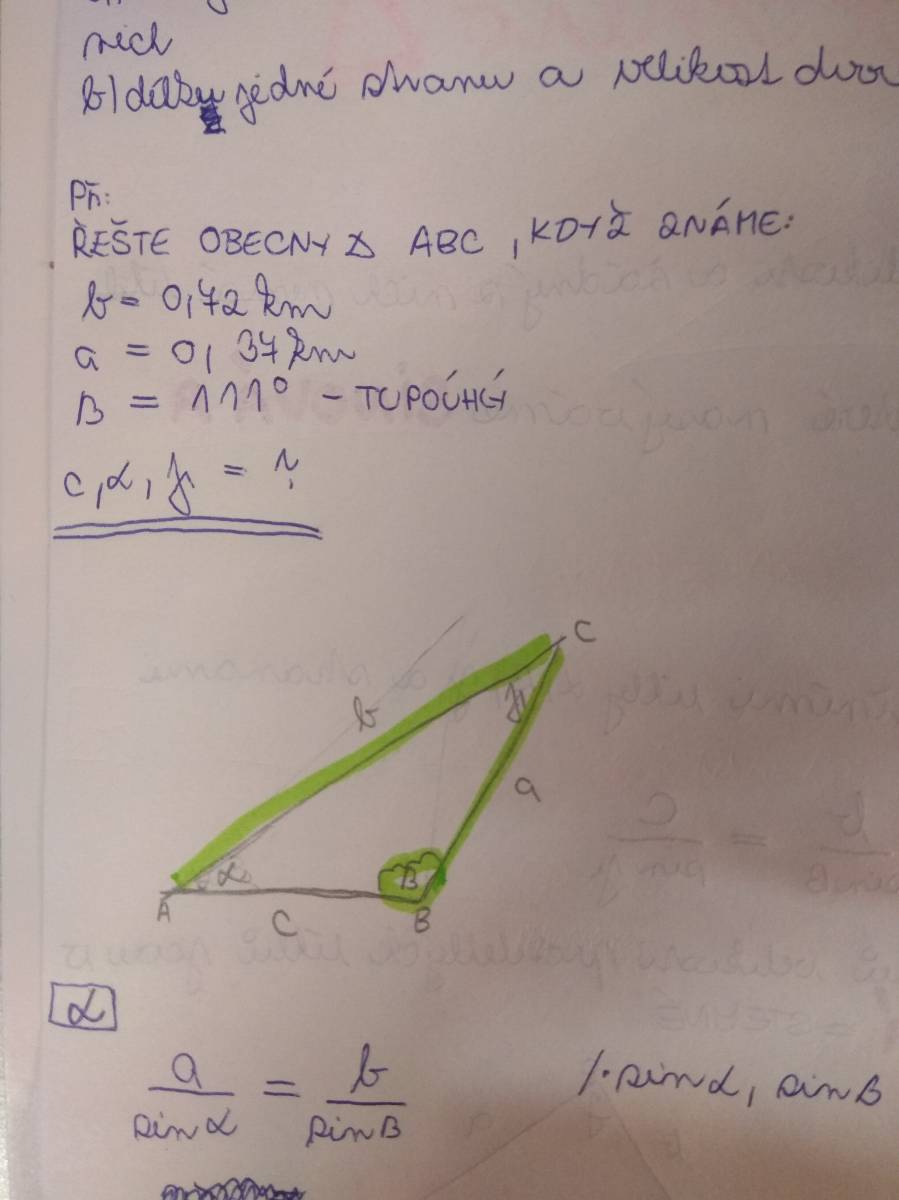 nich
b) délku jedné stranu a velikost dvou
Př:
ŘEŠTE OBECNY △ ABC, KDYŽ ZNÁME:
b = 0,72 km
a = 0,37 km
β = 111° - TUPOÚHÝ
c, α, γ = ?
C
b
γ
a
α
β
A
c
B
α
a/sin α = b/sin β /· sin α, sin β